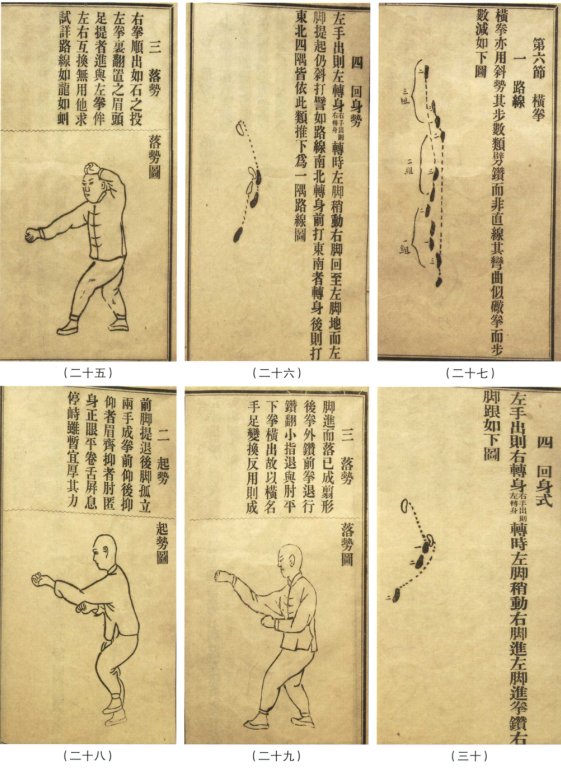 三　落勢
右拳順出如石之投
左拳裏翻置之眉頭
足提者進與左拳侔
左右互換無用他求
試詳路線如龍如虯
落勢圖
（二十五）
四　回身勢
左手出則左轉身右手出則右轉身轉時左脚稍動右脚回至左脚地而左
脚提起仍斜打譬如路線南北轉身前打東南者轉身後則打
東北四隅皆依此類推下爲一隅路線圖
（二十六）
第六節　橫拳
一　路線
橫拳亦用斜勢其步數類劈鑽而非直線其彎曲似礮拳而步
數減如下圖
三組
二組
一組
（二十七）
二　起勢
前脚提退後脚孤立
兩手成拳前仰後抑
仰者眉齊抑者肘匿
身正眼平卷舌屏息
停峙雖暫宜厚其力
起勢圖
（二十八）
三　落勢
脚進而落已成翦形
後拳外鑽前拳退行
鑽翻小指退與肘平
下拳橫出故以橫名
手足變換反用則成
落勢圖
（二十九）
四　回身式
左手出則右轉身右手出則左轉身轉時左脚稍動右脚進左脚進拳鑽右
脚跟如下圖
（三十）